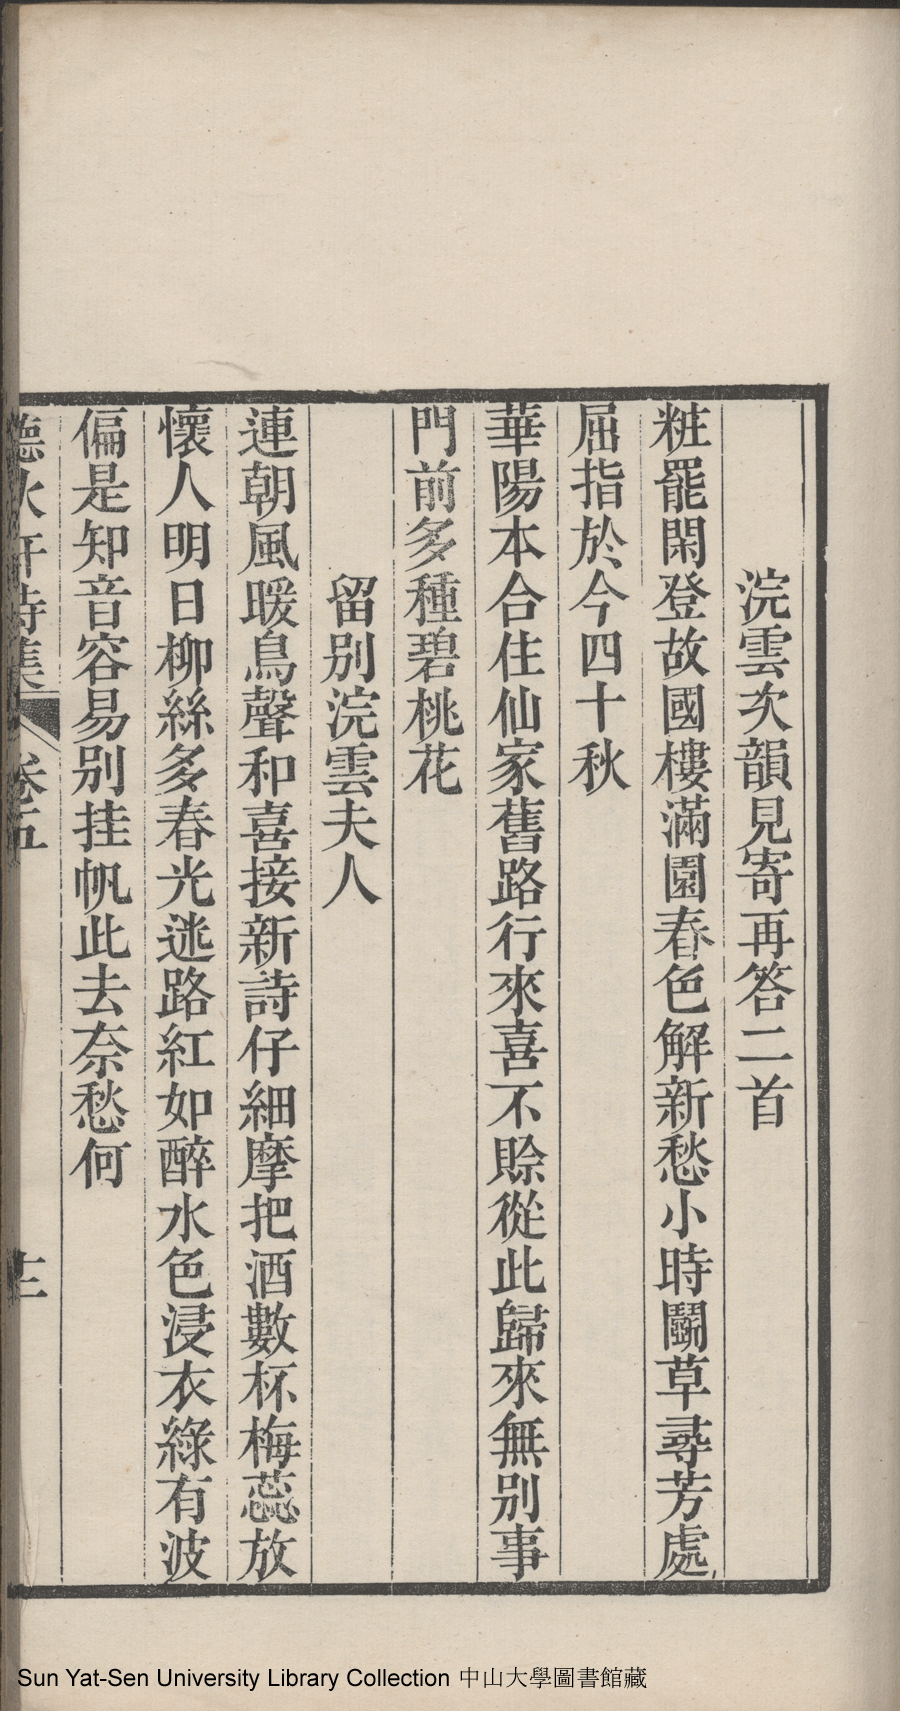 浣雲次韻見寄再答二首
粧罷閑登故國樓滿園春色解新愁小時鬬草尋芳處
屈指於今四十秋
華陽本合住仙家舊路行來喜不賒從此歸來無別事
門前多種碧桃花
留別浣雲夫人
連朝風暖鳥聲和喜接新詩仔細摩把酒數杯梅蕊放
懷人明日柳絲多春光迷路紅如醉水色浸衣綠有波
偏是知音容易別挂帆此去奈愁何
德水軒詩集 卷五 十二
Sun Yat-Sen University Library Collection 中山大學圖書館藏